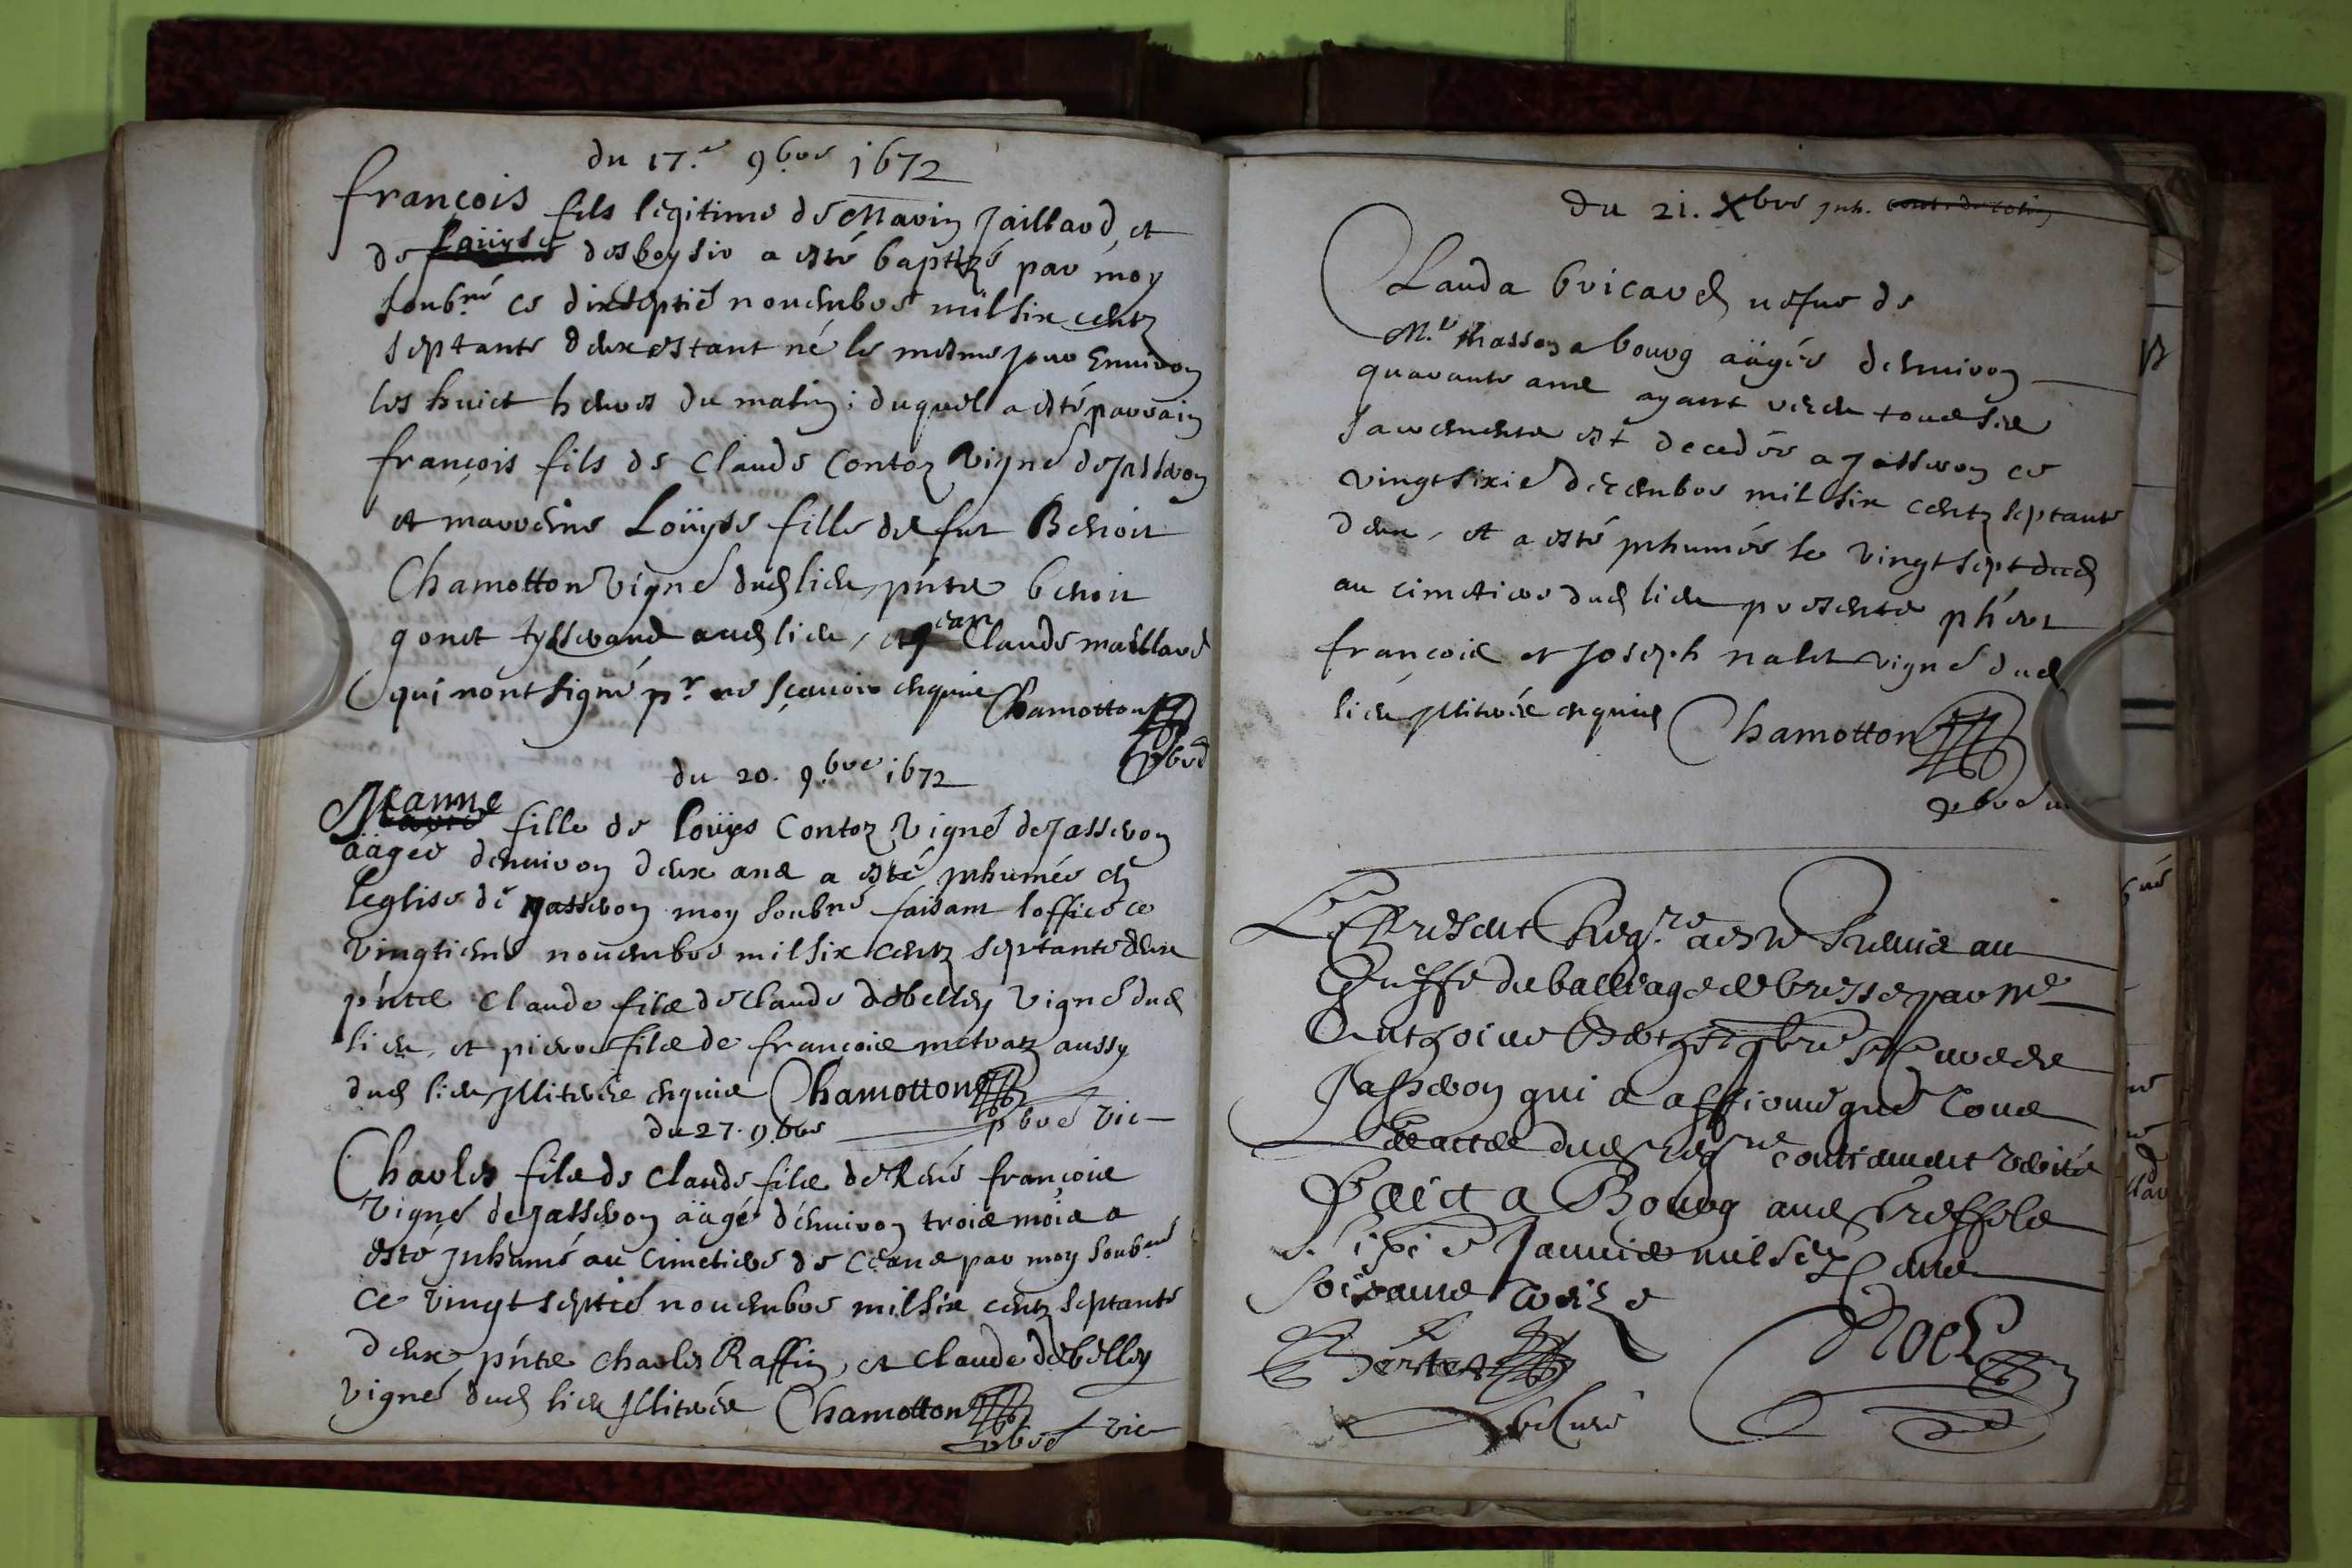 du 17.e 9bre 1672
françois fils legitime de Marin Jaillard, et
de Loüyse desboysir a esté baptizé par moy
soubné ce dixseptié novembre mil six centz
septante deux estant né le mesme jour environ
les huict heures du matin; duquel a esté parrain
françois fils de Claude Contoz vigné de Jasseron
et marreine Loüyse fille de fut Benoit
Chamotton vigné dud lieu, pnts benoit
gonet tysserand aud lieu, et Jean Claude maillard
qui nont signé pr ne sçavoir enquis Chamotton
pbre
du 20. 9.bre 1672
Jeanne fille de Loüys Contoz vigné de Jasseron
aâgée denuiron deux ans a esté inhumée en
leglise de Jasseron moy soubné faisant loffice ce
vingtieme novembre mil six centz septante deux
pnts Claude fils de Claude debelley vigné dud
lieu, et pierre fils de françois metraz aussy
dud lieu illiterés enquis Chamotton
pbre vic
du 27. 9.bre
Charles fils de Claude fils de René françois
vigné de Jasseron aâgé denuiron trois mois a
esté inhumé au cimetiere de ceans par moy soubné
ce vingt septié novembre mil six centz septante
deux, pnts charles Raffin, et Claude debelley
vigné dud lieu illiterés Chamotton
pbre vic
du 21. Xbre inh.
Clauda bricard vefue de
Mr. Masson a bourg aâgée denuiron
quarante ans ayant receu tous ses
sacrements est decedée a Jasseron ce
vingt sixié decembre mil six centz septante
deux, et a esté inhumée le vingt sept dud
au cimetiere dud lieu presents phert
françois et Joseph nalet vigné dud
lieu illiterés enquis Chamotton
pbre
Le Present Regre a este Remis au
Greffe du balliage de bresse par Me
Anthoine pbre cure de
Jasseron qui a affirmé que tous
les actes dud regre contiennent verité
Faict a Bourg aud Greffe le
Janvier mil six cens
soixante treize
Noel
pbe Curé